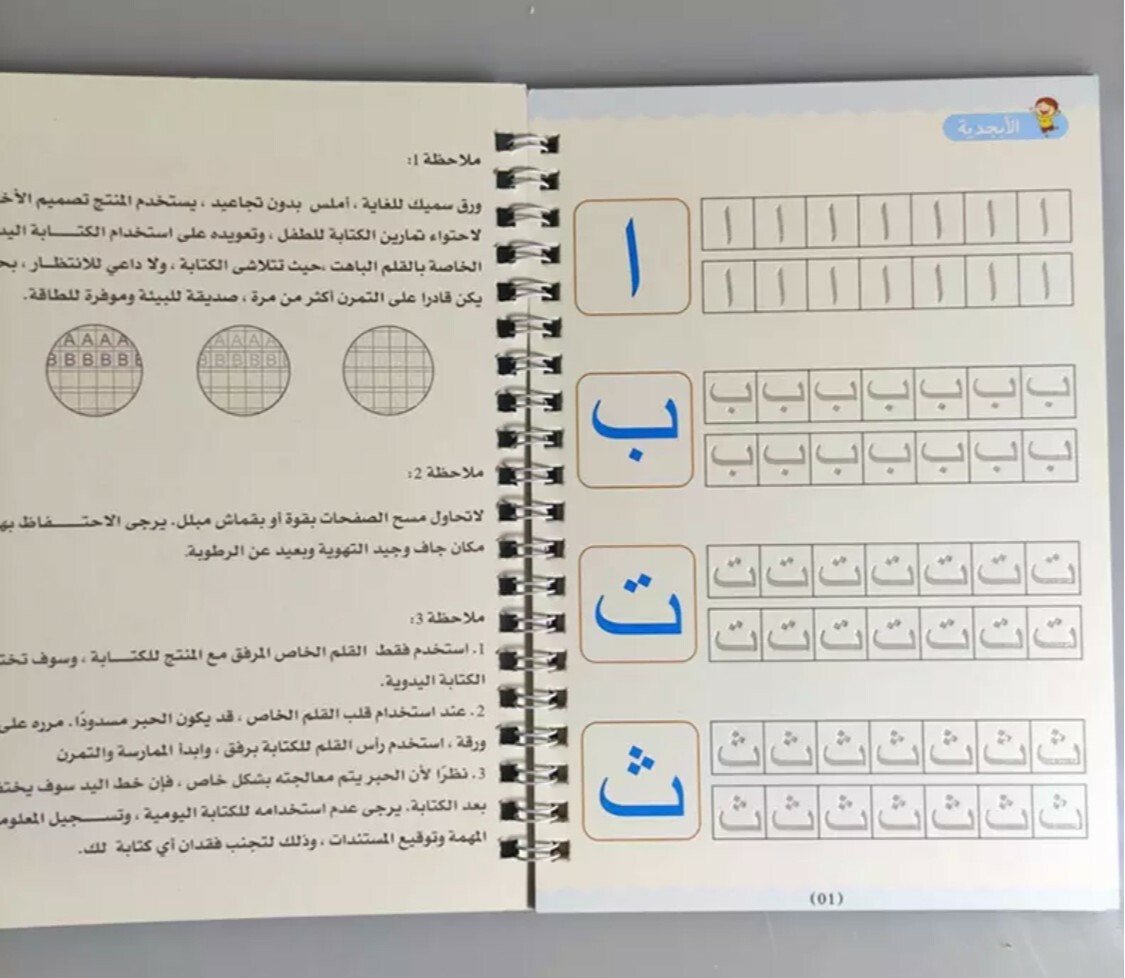 الأبجدية
ا ا ا ا ا ا ا ا
ا ا ا ا ا ا ا
ب ب ب ب ب ب ب ب
ب ب ب ب ب ب ب
ت ت ت ت ت ت ت ت
ت ت ت ت ت ت ت
ث ث ث ث ث ث ث ث
ث ث ث ث ث ث ث
(01)
ملاحظة 1:
ورق سميك للغاية ، أملس بدون تجاعيد ، يستخدم المنتج تصميم
لاحتواء تمارين الكتابة للطفل ، وتعويده على استخدام الكتـــابة
الخاصة بالقلم الباهت ،حيث تتلاشى الكتابة ، ولا داعي للانتظـار ،
يكن قادرا على التمرن أكثر من مرة ، صديقة للبيئة وموفرة للطاقة.
A A A A
B B B B B
A A A A
B B B B B
ملاحظة 2:
لاتحاول مسح الصفحات بقوة أو بقماش مبلل. يرجى الاحتــــفاظ
مكان جاف وجيد التهوية وبعيد عن الرطوبة.
ملاحظة 3:
1. استخدم فقط القلم الخاص المرفق مع المنتج للكتـــابة ، وسوف
الكتابة اليدوية.
2. عند استخدام قلب القلم الخاص ، قد يكون الحبر مسدودًا. مرره على
ورقة ، استخدم رأس القلم للكتابة برفق ، وابدأ الممارسة والتمرن
3. نظرًا لأن الحبر يتم معالجته بشكل خاص ، فإن خط اليد سوف
بعد الكتابة. يرجى عدم استخدامه للكتابة اليومية ، وتســـجيل
المهمة وتوقيع المستندات ، وذلك لتجنب فقدان أي كتابة لك.